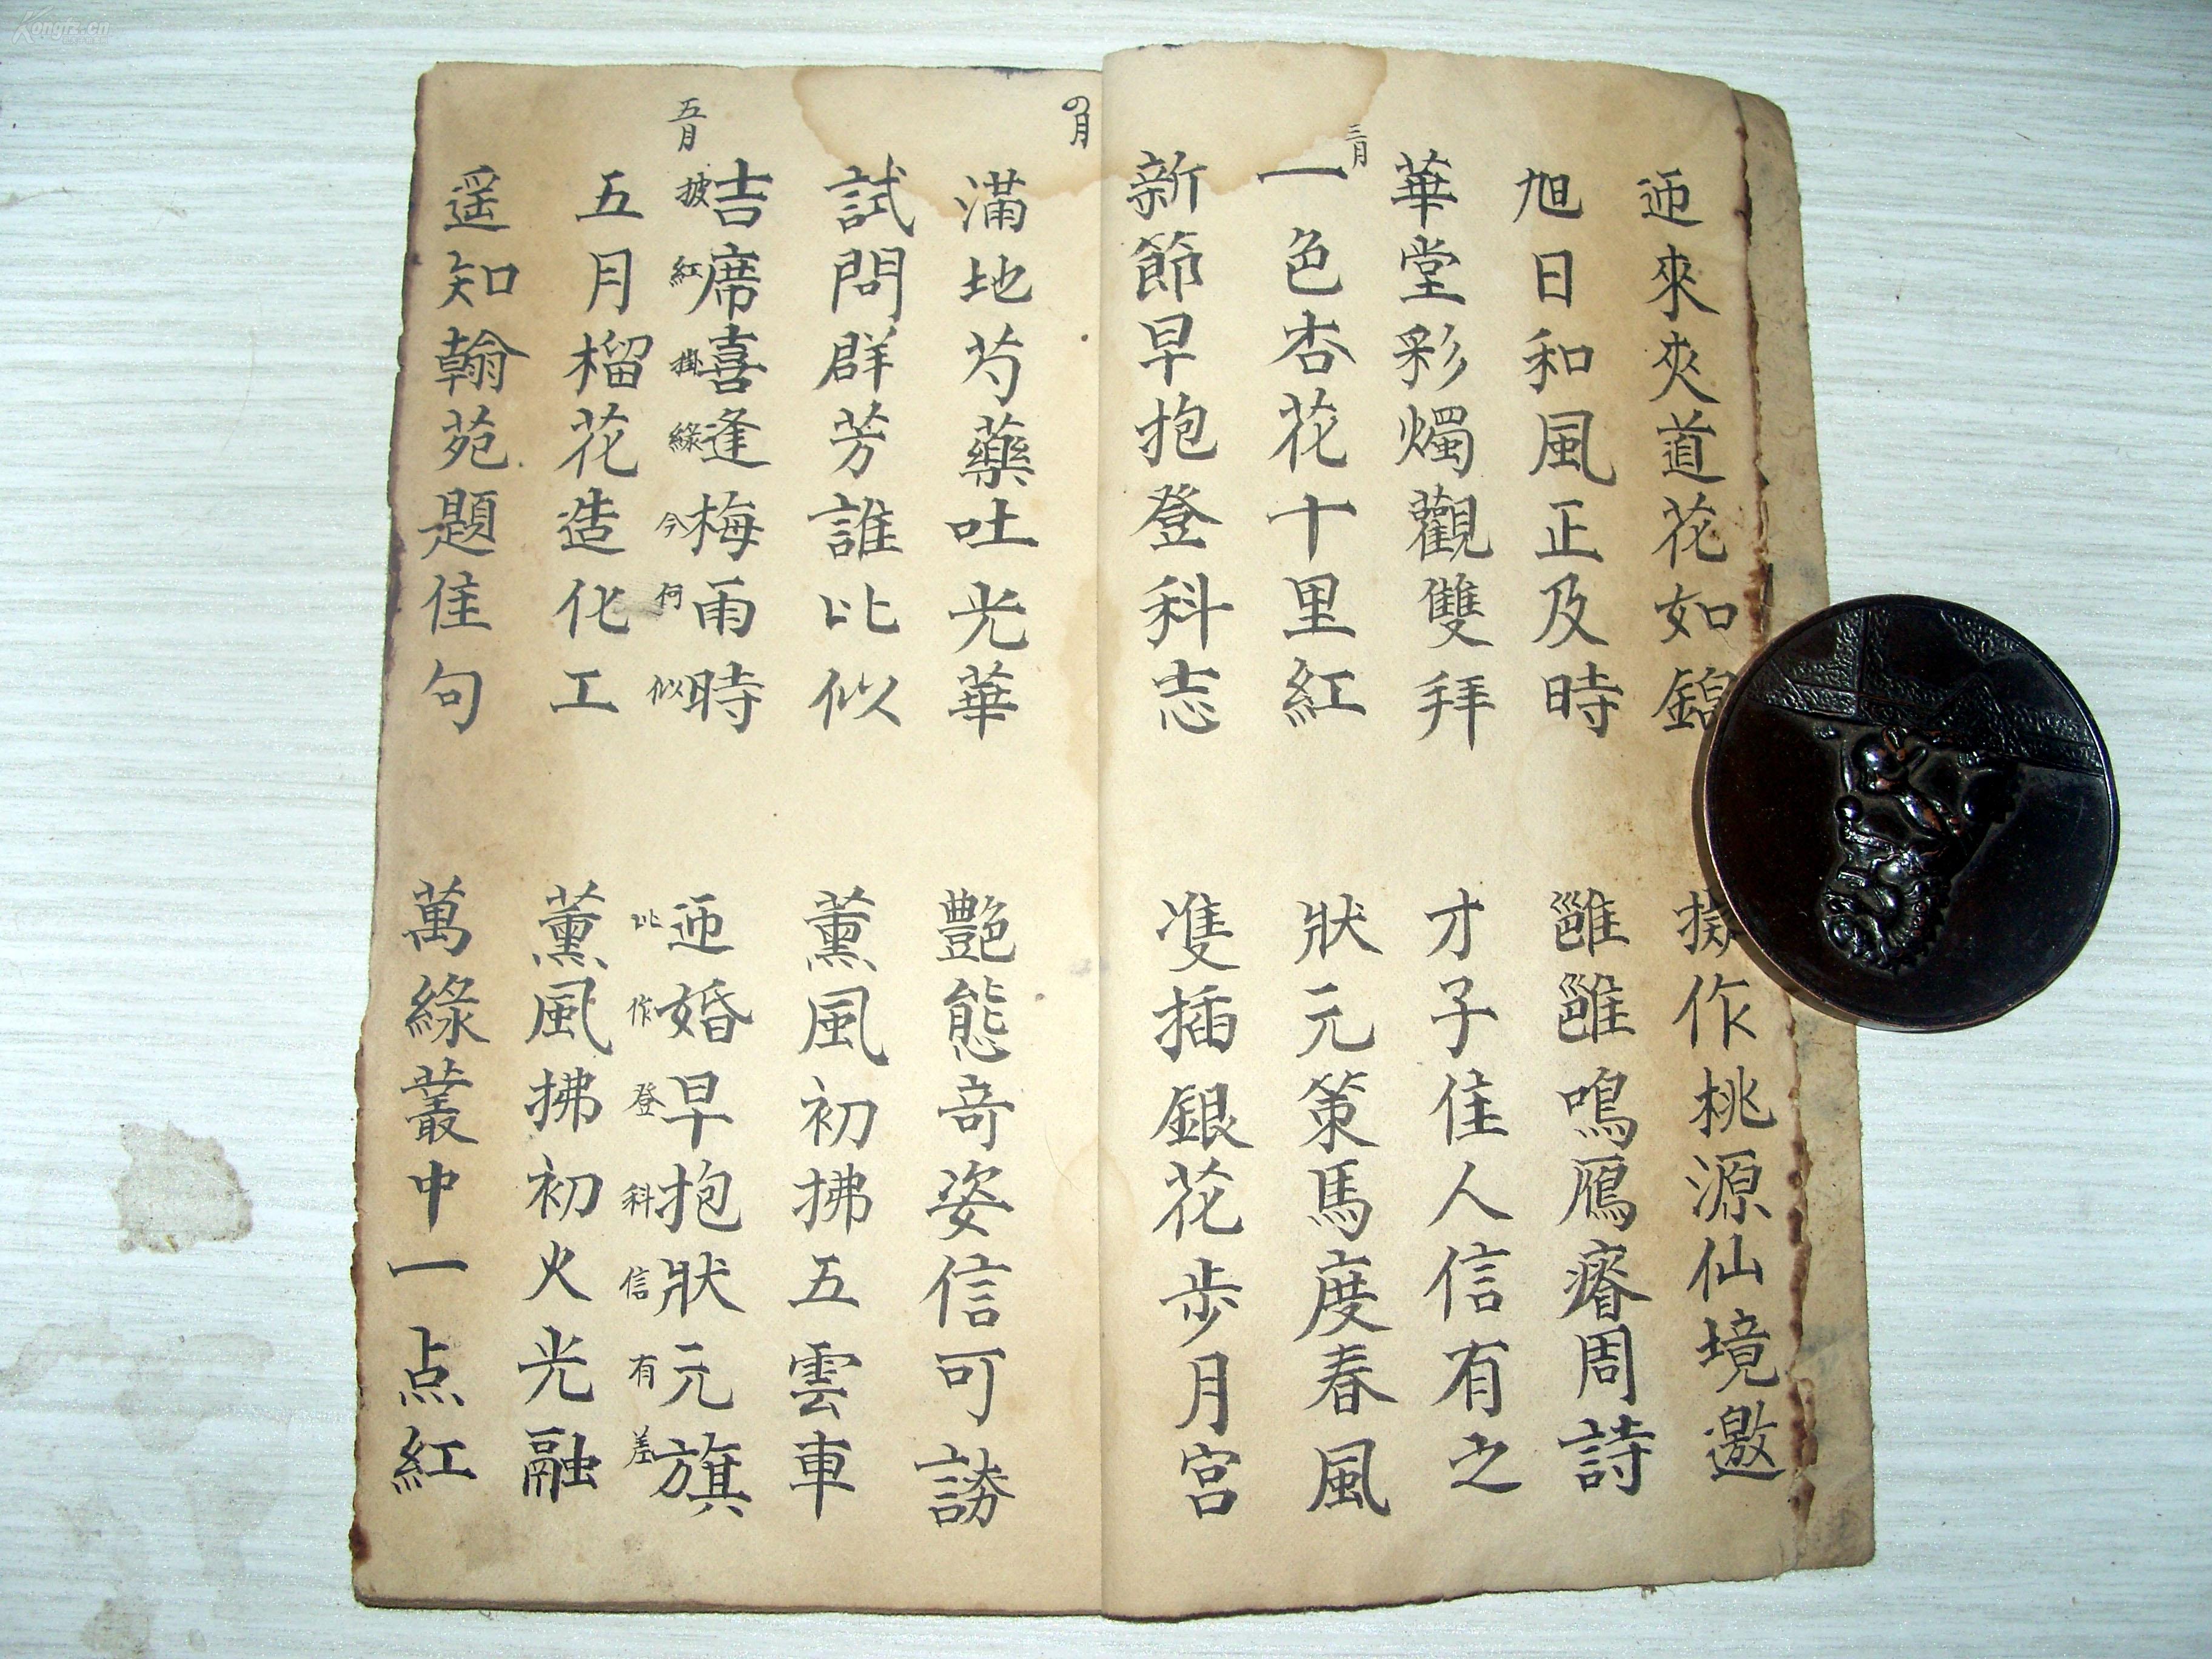 Kongfz.cn
迊來夾道花如錦
擬作桃源仙境邀
旭日和風正及時
雝雝鳴鴈療周詩
華堂彩燭觀雙拜
才子佳人信有之
三月
一色杏花十里紅
狀元策馬度春風
新節早抱登科志
隻插銀花步月宮
の月
滿地芍藥吐光華
艷態奇姿信可誇
試問群芳誰比似
薰風初拂五雲車
吉席喜逢梅雨時
迊婚早抱狀元旗
五月
披紅掛綠今何似
比作登科信有差
五月榴花造化工
薰風拂初火光融
遥知翰苑題佳句
萬綠叢中一点紅